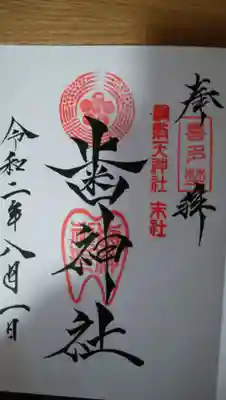 奉拝
喜多埜
大神社 末社
歯神社
令和二年八月一日